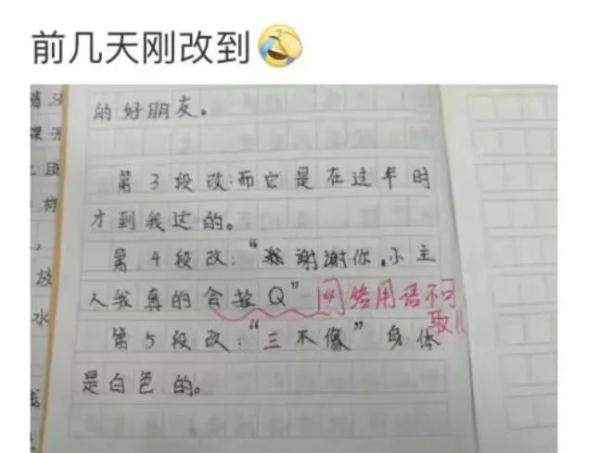 前几天刚改到
的好朋友。
第3段改:而它是在过年时
才到我这的。
第4段改:“谢谢你,小主
人我真的会栓Q”
网络用语不可取!!
第5段改:“三不像”身体
是白色的。